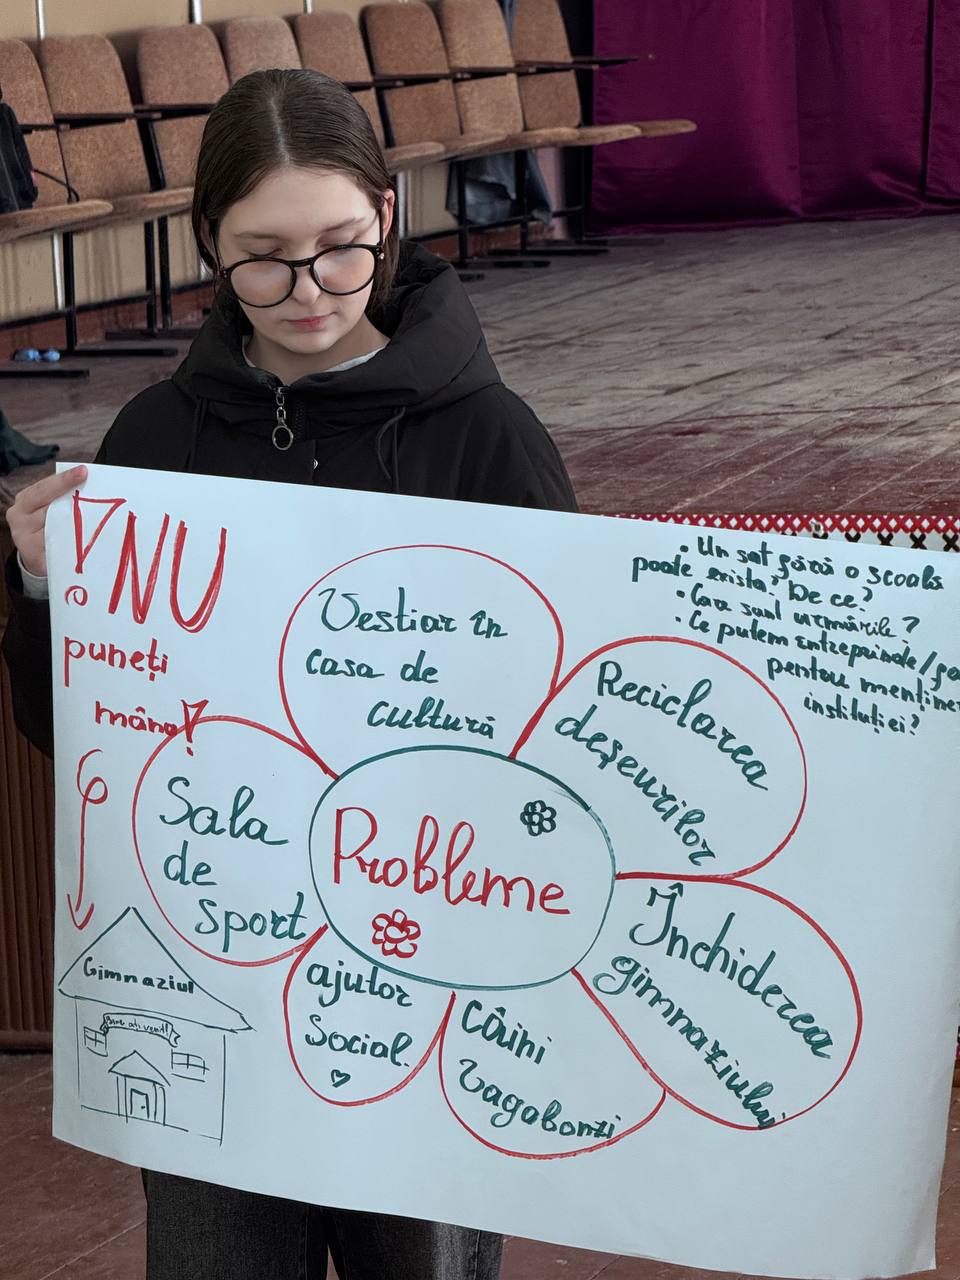 ! NU
puneți
mâna!
Vestiar în
casa de
cultură
• Un sat fără o școală
poate exista? De ce?
• Care sunt urmările?
• Ce putem întreprinde/
pentru
instituției?
Reciclarea
deșeurilor
Sala
de
sport
Probleme
Închiderea
gimnaziului
ajutor
Social.
Câini
vagabonzi
Gimnaziul
Bine ați venit!